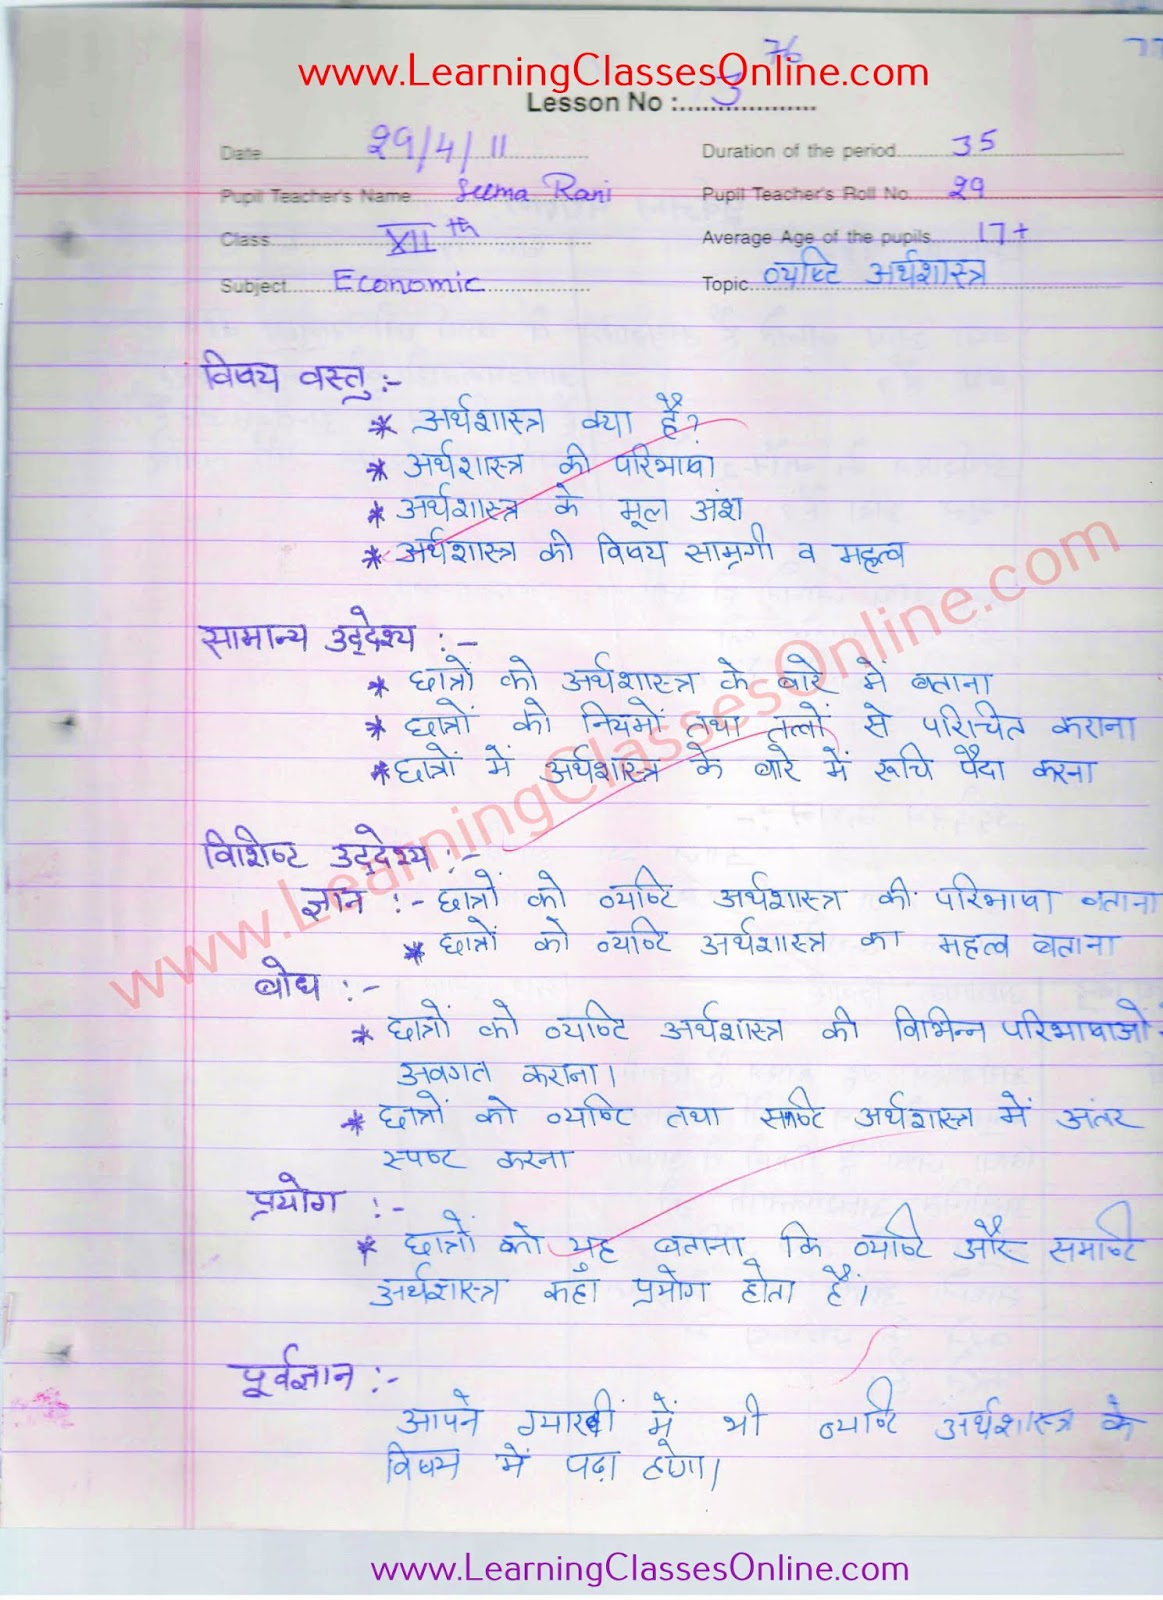 76
www.LearningClassesOnline.com
Lesson No :.... 3
Date 29/4/11 Duration of the period 35
Pupil Teacher's Name Seema Rani Pupil Teacher's Roll No. 29
Class XII th Average Age of the pupils 17+
Subject Economic Topic व्यष्टि अर्थशास्त्र
विषय वस्तु :-
* अर्थशास्त्र क्या है?
* अर्थशास्त्र की परिभाषा
* अर्थशास्त्र के मूल अंश
* अर्थशास्त्र की विषय सामग्री व महत्व
सामान्य उद्देश्य :-
* छात्रों को अर्थशास्त्र के बारे में बताना
* छात्रों को नियमों तथा तत्वों से परिचित कराना
* छात्रों में अर्थशास्त्र के बारे में रूचि पैदा करना
विशिष्ट उद्देश्य :-
ज्ञान :- छात्रों को व्यष्टि अर्थशास्त्र की परिभाषा बताना
* छात्रों को व्यष्टि अर्थशास्त्र का महत्व बताना
www.LearningClassesOnline.com
बोध :-
* छात्रों को व्यष्टि अर्थशास्त्र की विभिन्न परिभाषाओं
अवगत कराना।
* छात्रों को व्यष्टि तथा समष्टि अर्थशास्त्र में अंतर
स्पष्ट करना
प्रयोग :-
* छात्रों को यह बताना कि व्यष्टि और समष्टि
अर्थशास्त्र कहाँ प्रयोग होता है।
पूर्वज्ञान :-
आपने ग्यारवीं में भी व्यष्टि अर्थशास्त्र के
विषय में पढ़ा होगा।
www.LearningClassesOnline.com